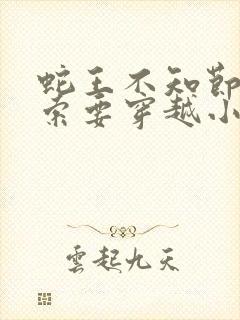 蛇王不知節
索要穿越小
雲起九天